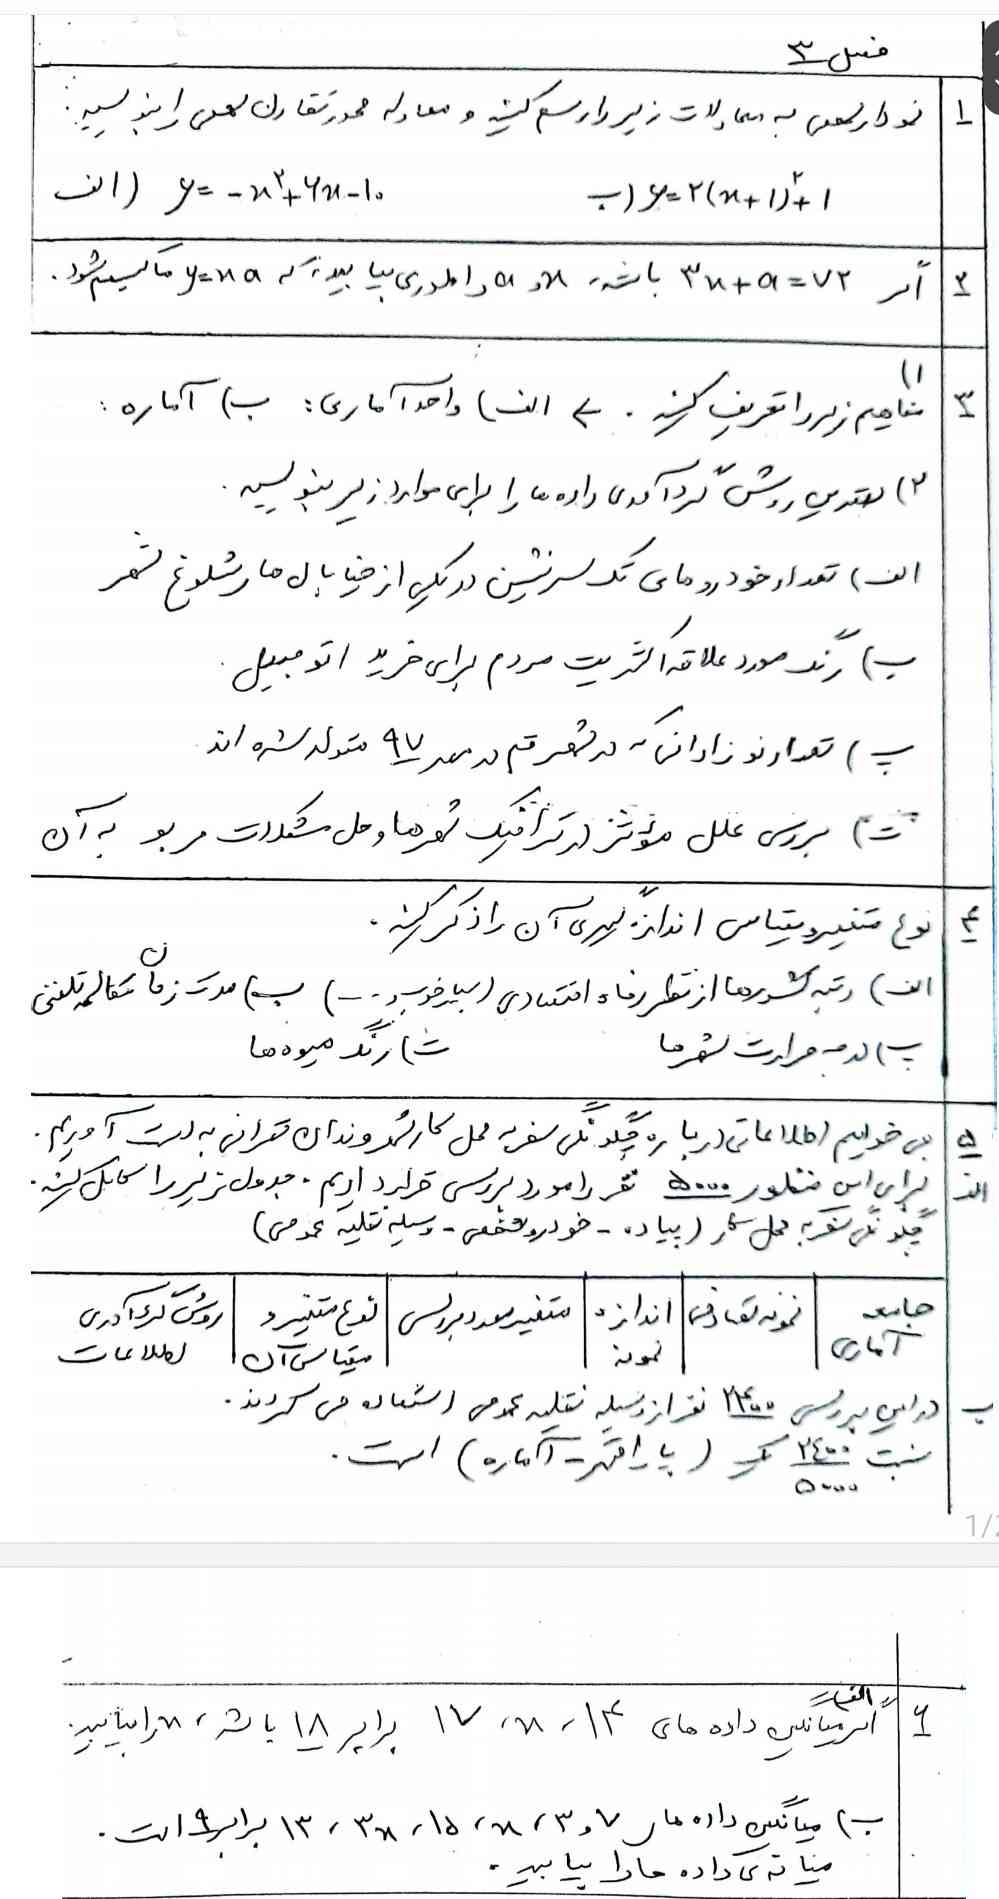 فصل ۳
۱ نمودار سهمی به معادلات زیر را رسم کنید و معادله محور تقارن سهمی را بنویسید:
الف) y = -x²+6x-10 ب) y=2(x+1)²+1
۲ اگر 3x+a=72 باشد، x و a را طوری بیابید که y=xa ماکسیمم شود.
۳ ۱) مفاهیم زیر را تعریف کنید. الف) واحد آماری: ب) آماره:
۲) بهترین روش گردآوری داده ها را برای موارد زیر بنویسید.
الف) تعداد خودروهای تک سرنشین در یکی از خیابان های شلوغ شهر
ب) رنگ مورد علاقه اکثریت مردم برای خرید اتومبیل.
پ) تعداد نوزادانی که در شهر قم در مهر ۹۷ متولد شده اند
ت) بررسی علل مؤثر در ترافیک شهرها و حل مشکلات مربو به آن
۴ نوع متغیر و مقیاس اندازه گیری آن را ذکر کنید.
الف) رتبه کشورها از نظر رفاه اقتصادی (بسیار خوب و ...) ب) مدت زمان مکالمه تلفنی
پ) درجه حرارت شهرها ت) رنگ میوه ها
۵ می خواهیم اطلاعاتی درباره چگونگی سفر به محل کار شهروندان تهرانی به دست آوریم.
الف برای این منظور ۵۰۰۰ نفر را مورد بررسی قرار دادیم. جدول زیر را کامل کنید.
چگونگی سفر به محل کار (پیاده - خودرو شخصی - وسیله نقلیه عمومی)
جامعه آماری | نمونه تصادفی | اندازه نمونه | متغیر مورد بررسی | نوع متغیر و مقیاس آن | روش گردآوری اطلاعات
ب در این بررسی ۲۴۰۰ نفر از وسیله نقلیه عمومی استفاده می کردند.
نسبت ۲۴۰۰/۵۰۰۰ یک (پارامتر - آماره) است.
1/2
۶ الف) اگر میانگین داده های ۱۴، x، ۱۷ برابر ۱۸ باشد، x را بیابید.
ب) میانگین داده های ۷، ۳، x، ۱۵، 3x، ۱۳ برابر ۹ است.
میانه ی داده ها را بیابید.